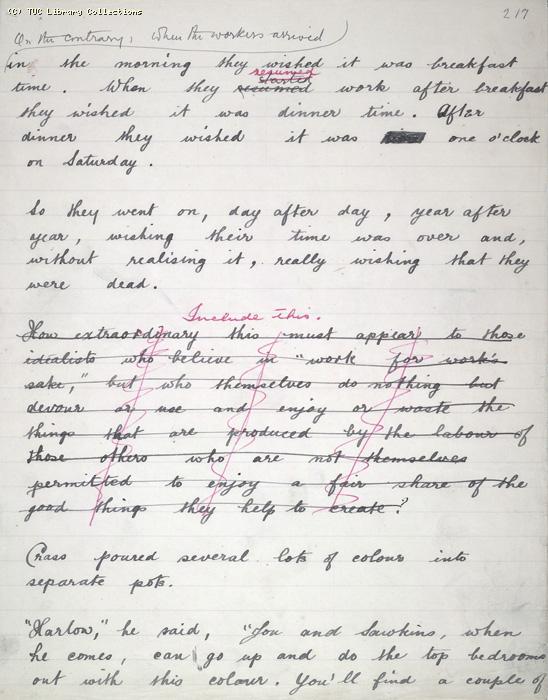 (C) TUC Library Collections
217
On the contrary, when the workers arrived
in the morning they wished it was breakfast
resumed
started
time. When they resumed work after breakfast
they wished it was dinner time. After
dinner they wished it was one o'clock
on Saturday.
So they went on, day after day, year after
year, wishing their time was over and,
without realising it, really wishing that they
were dead.
Include this.
How extraordinary this must appear to those
idealists who believe in "work for work's
sake," but who themselves do nothing but
devour or use and enjoy or waste the
things that are produced by the labour of
those others who are not themselves
permitted to enjoy a fair share of the
good things they help to create?
Crass poured several lots of colour into
separate pots.
"Harlow," he said, "You and Sawkins, when
he comes, can go up and do the top bedrooms
out with this colour. You'll find a couple of